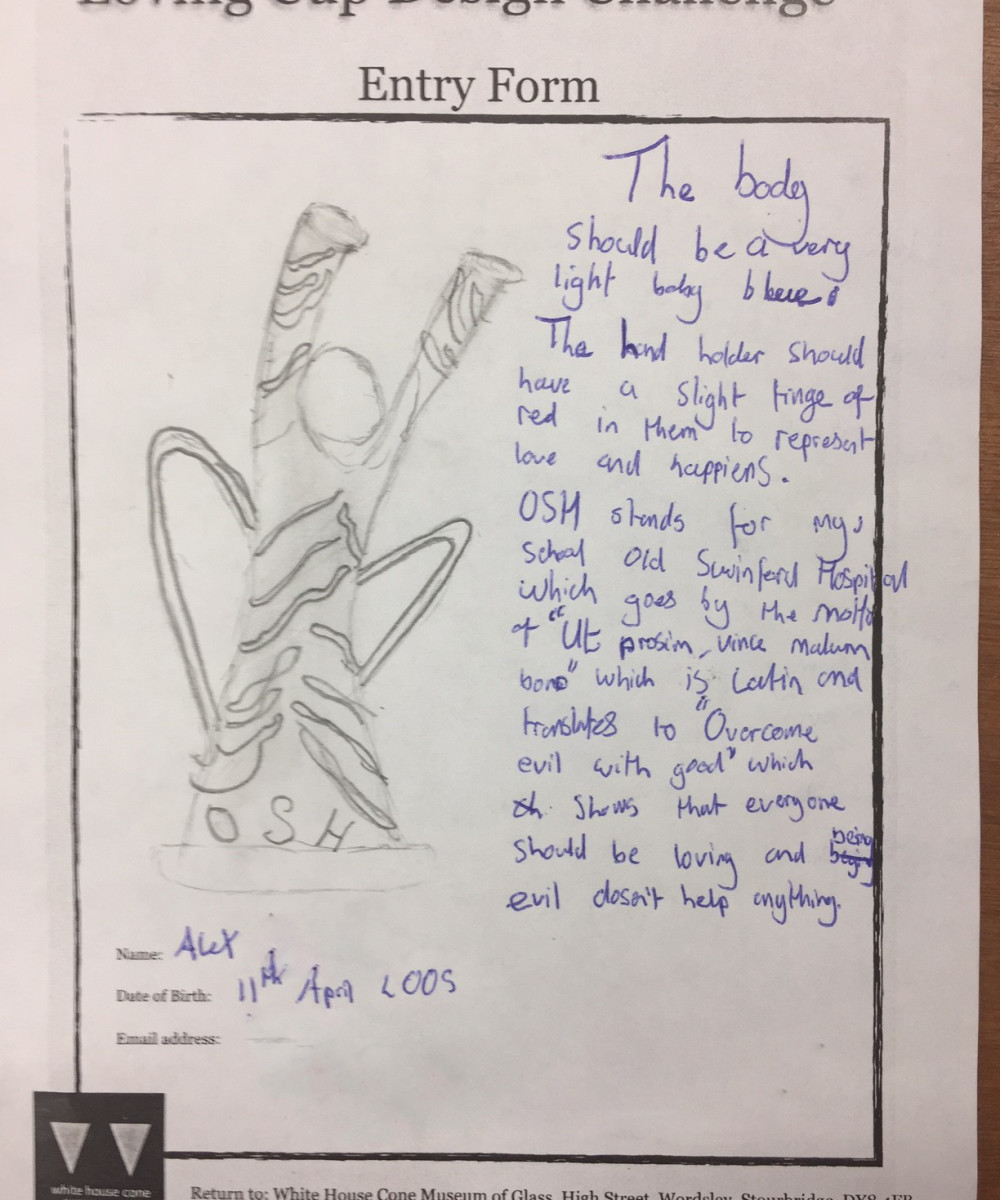 Loving Cup Design Challenge
Entry Form
The body
should be a very
light baby blue
The hand holder should
have a slight tinge of
red in them to represent
love and happiens.
OSH stands for my
School Old Swinford Hospital
which goes by the motto
of "Ut prosim, vince malum
bono" which is Latin and
translates to "Overcome
evil with good" which
shows that everyone
should be loving and being
evil dosen't help anything.
OSH
Name: Alex
Date of Birth: 11th April 2005
Email address:
white house cone
Return to: White House Cone Museum of Glass, High Street, Wordsley, Stourbridge, DY8 4FB